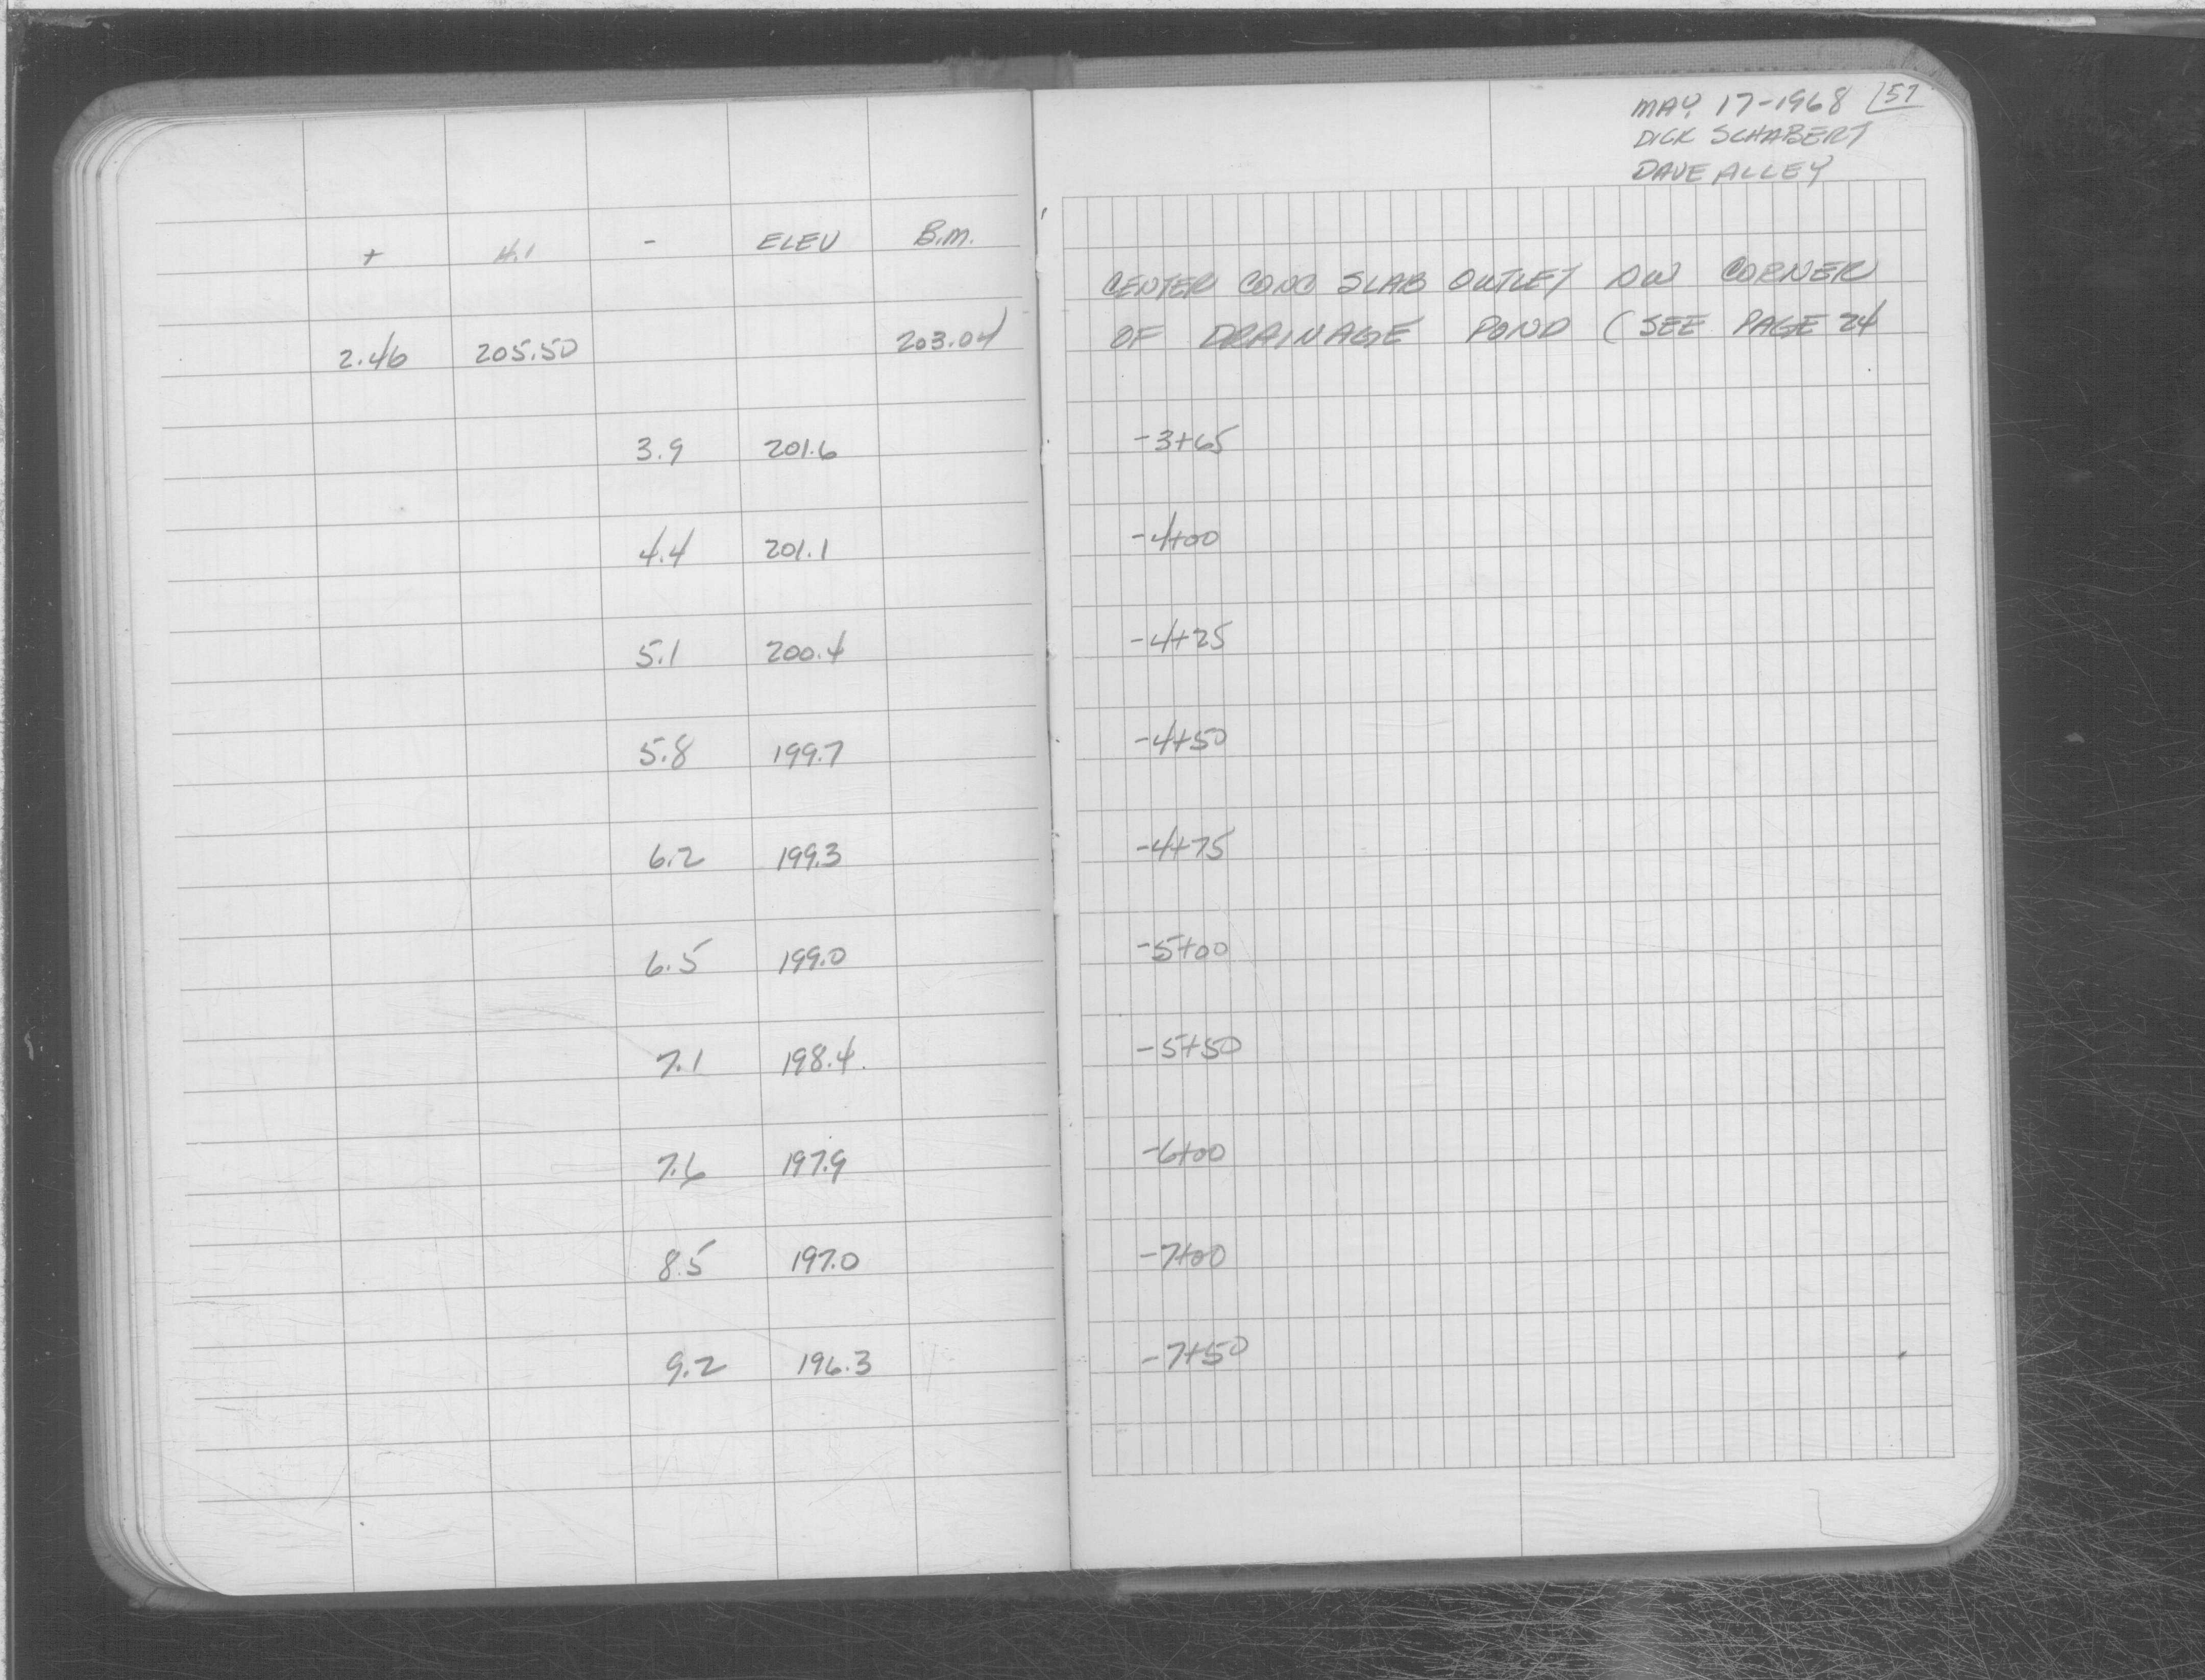 MAY. 17-1968 57
DICK SCHABERT
DAVE ALLEY
+ H.I - ELEV B.M.
CENTER CONC SLAB OUTLET NW CORNER
2.46 205.50 203.04 OF DRAINAGE POND (SEE PAGE 24
3.9 201.6 -3+65
4.4 201.1 -4+00
5.1 200.4 -4+25
5.8 199.7 -4+50
6.2 199.3 -4+75
6.5 199.0 -5+00
7.1 198.4. -5+50
7.6 197.9 -6+00
8.5 197.0 -7+00
9.2 196.3 -7+50